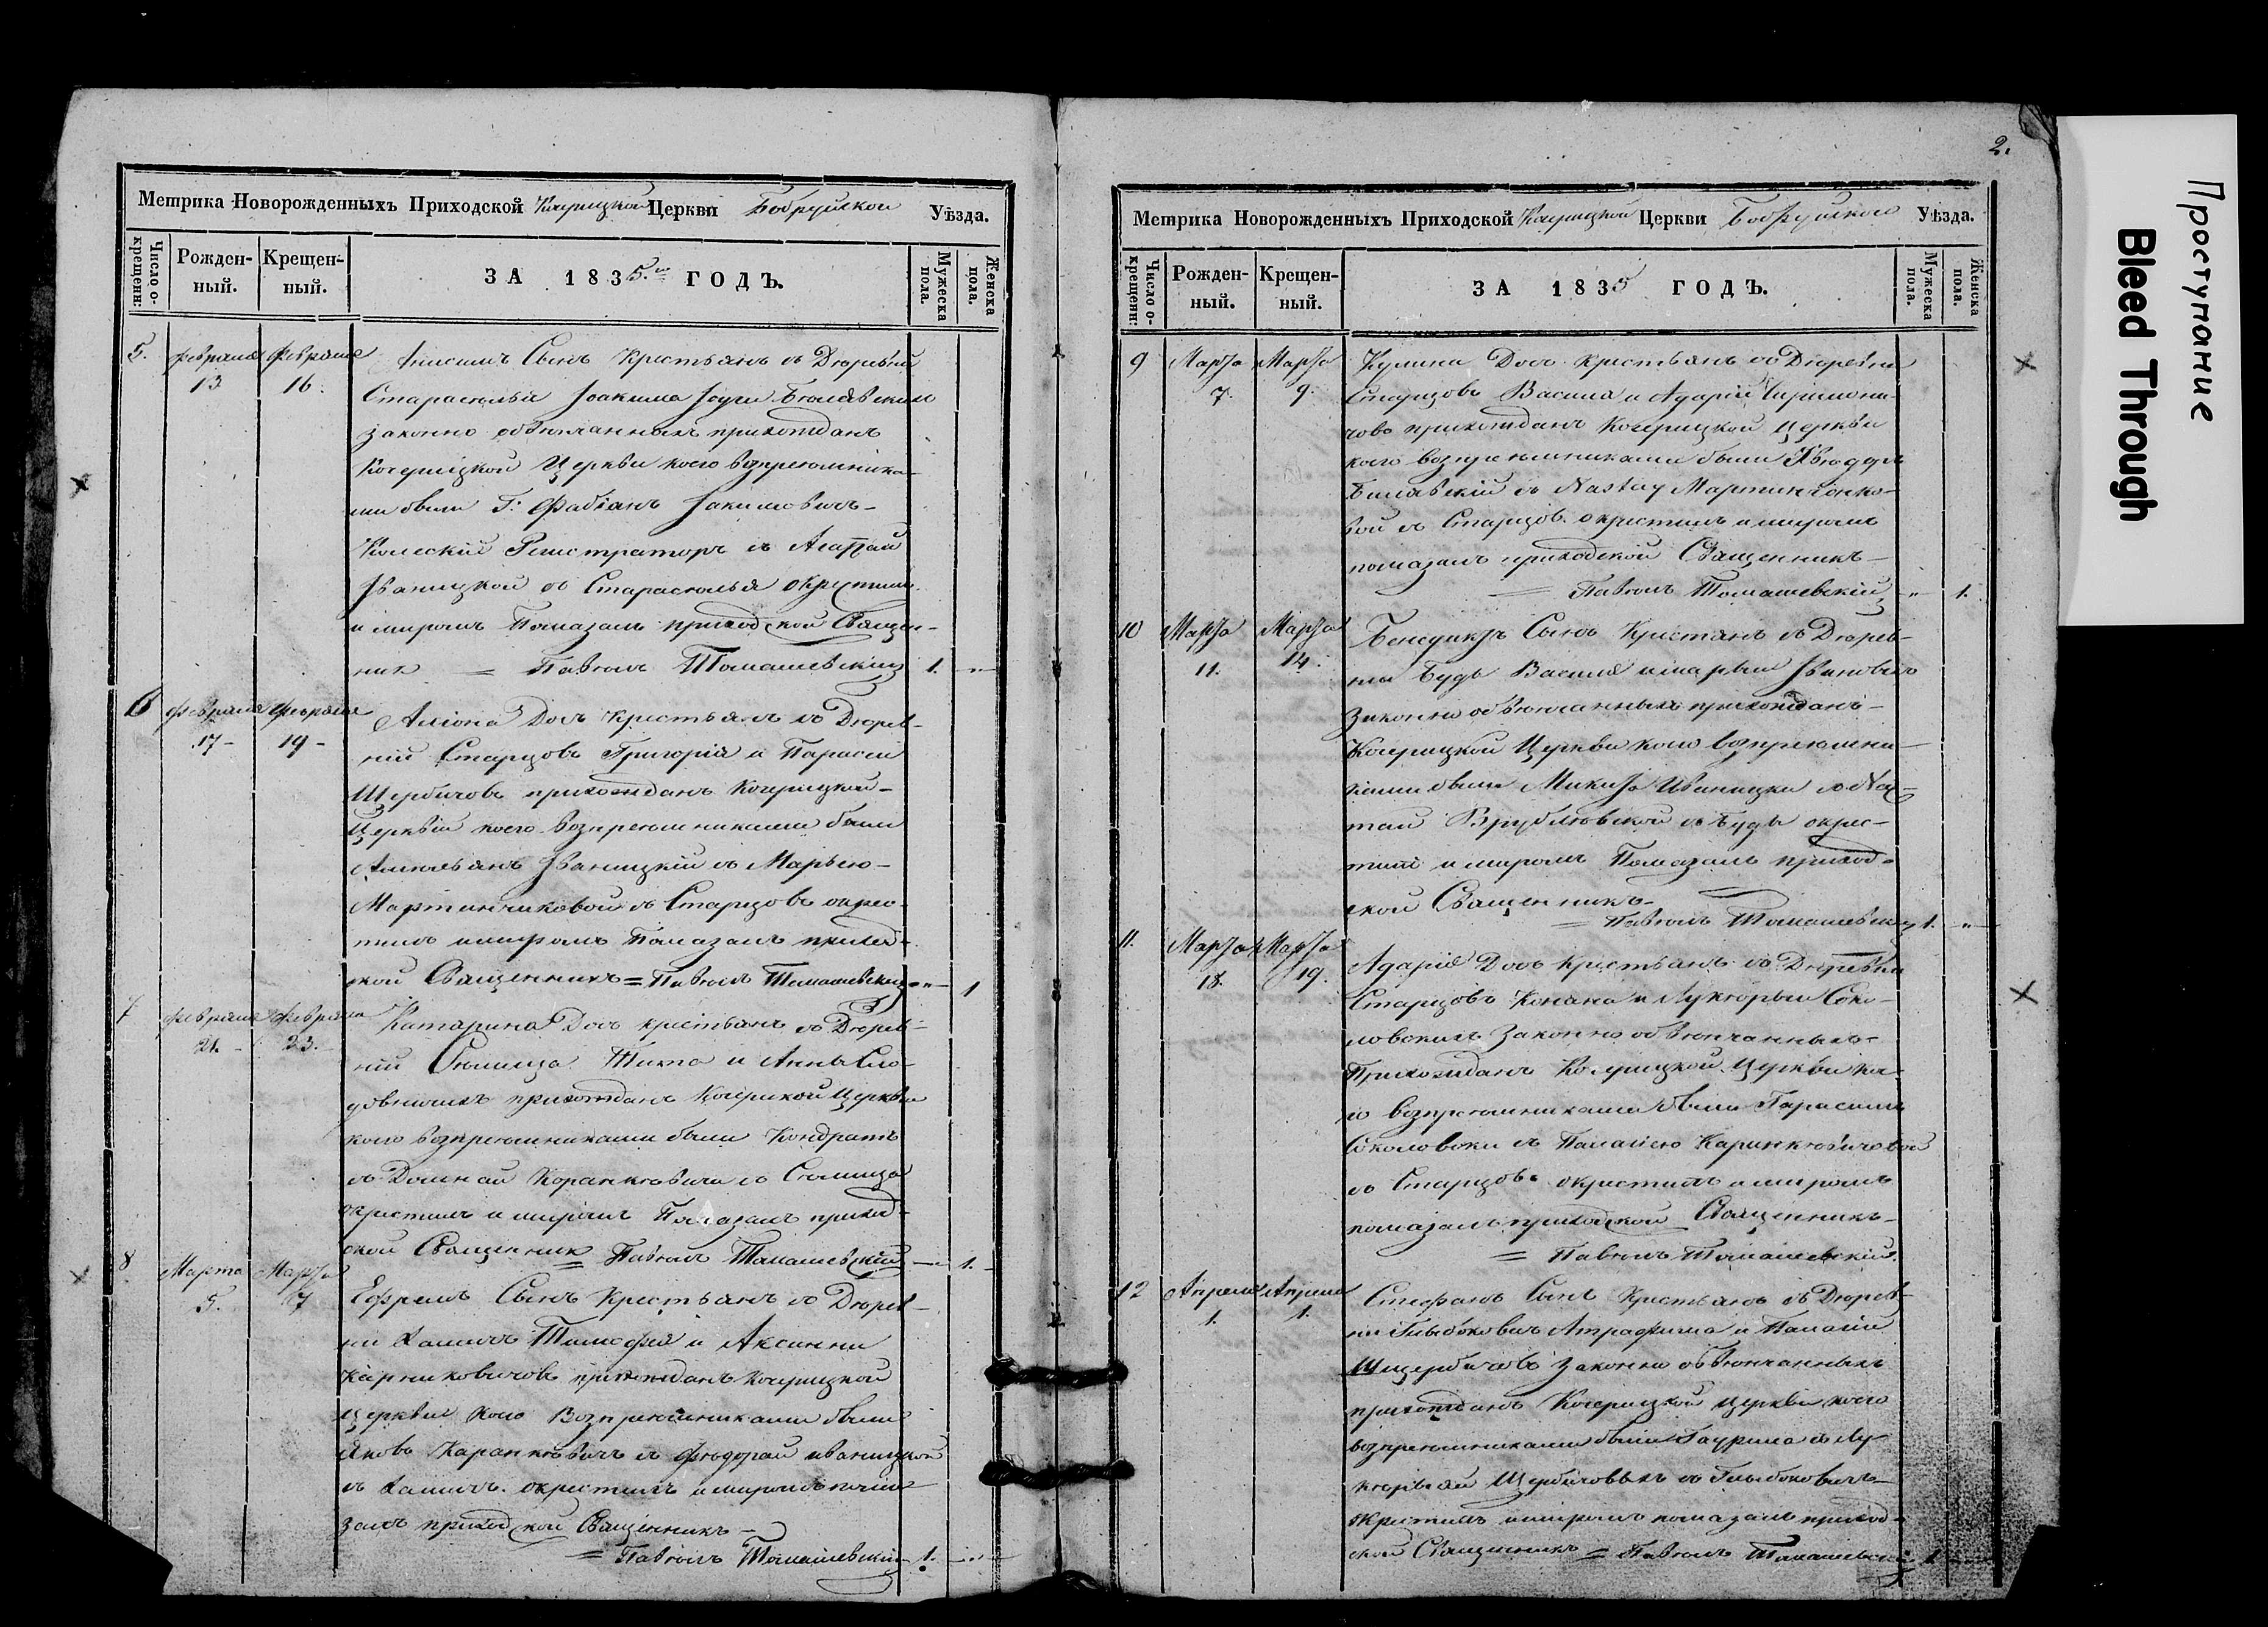 Метрика Новорожденныхъ Приходской Кочерицкой Церкви Бобруйскои Уѣзда.
Число о-крещенн:
Рожден-ный.
Крещен-ный.
ЗА 1835.го ГОДЪ.
Мужеска пола.
Женска пола.
5.
Февраля 13
Февраля 16.
Анисимъ Сынъ Крестьянъ съ Дюревни
Старасюлья Іоакима
законно обвюнчанныхъ прихожданъ
Кочерицкой Церкви коего возпреюмника-
ми были Г: Фабіанъ Іакимовичъ-
Регистраторъ съ Агапіаи
Иваницкой съ Старасюлья окрутили
и миромъ Помазалъ приходской Священ-
ник = Павюлъ Томашевскій 1. -"-
6
Февраля 17-
Февраля 19-
Аліона Дочь крестьянъ съ Дюрев-
ній Старцовъ Григорія и Параси
Щербичовъ прихожданъ Кочерицкой-
Церквіи коего возпреюмниками были
Иваницкій съ Марьею-
Мартинчиковой съ Старцовъ окрес-
тилъ и миромъ Помазалъ приход-
ской Священникъ = Павюлъ Томашевскій -"- 1
7
Февраля 21.-
Февраля 23.
Катарина Дочь крестьянъ съ Дюрев-
ній Сюлища Тита и Анны
прихожданъ Кочерикой Церкви
коего возпреюмниками были Кондратъ
съ Домнаи Каранкювичи съ Сюлища
окрестилъ и миромъ Помазалъ приход-
ской Священник = Павюлъ Томашевскій -"- 1.
8
Марта 5.
Марта 7
Ефремъ Сынъ Крестьянъ съ Дюрев-
ни Тимофея и Аксинни
прихожданъ Кочерицкой
Церкви коего Возпреюмниками были
Яковъ Каранкювичъ съ Фюдораи иваницкой
окрестилъ и миромъ пома-
залъ приходской Священникъ-
= Павюлъ Томашевскій 1. -"-
2.
Метрика Новорожденныхъ Приходской Кочерицкой Церкви Бобруйского Уѣзда.
Число о-крещенн:
Рожден-ный.
Крещен-ный.
ЗА 1835 ГОДЪ.
Мужеска пола.
Женска пола.
9
Марта 7.
Марта 9.
Кулина Дочь крестьянъ съ Дюревни
Старцовъ Василя и Адаріи
човъ прихожданъ Кочерицкой Церкви
коего возпреюмниками были Хвюдоръ
Билявскій съ Nastay Мартинчонко-
вой съ Старцов. окрестилъ и миромъ
помазалъ приходской Священникъ-
= Павюлъ Томашевскій -"- 1.
10
Марта 11.
Марта 14.
Бенедиктъ Сынъ Кристянъ съ Дюрев-
ни Будъ Василя и марьи
Законно обвюнчанныхъ прихожданъ-
Кочерицкой Церкви коего возпреюмни-
ками были Микита Иваницки съ Nас-
таи Врублювской съ Будъ окрес-
тилъ и миромъ Помазалъ приход-
ской Священникъ-
= Павюлъ Томашевскій 1. -"-
11.
Марта 18.
Марта 19.
Адарія Дочь крестьянъ съ Дюревни
Старцовъ Конана и Лукюрьи Соко-
ловскихъ Законно обвюнчанныхъ-
Прихожданъ Кочерицкой Церкви ко-
го возпреюмниками были Гарасимъ
Соколовски съ Палагею
съ Старцовъ окрестилъ и миромъ
помазалъ приходской Священникъ-
= Павюлъ Томашевскій.
12
Апреля 1.
Апреля 1.
Стефанъ Сынъ Крестьянъ съ Дюрев-
ни Глыбоковичъ Атрафима и Палагіи
Щщербичовъ законно обвюнчанныхъ
прихожданъ Кочерицкой Церкви коего
возпреюмниками были Гаурила съ Лу-
кюрьяи Щербичовыхъ съ Глыбоковичъ
окрестилъ и миромъ помазалъ приход-
ской Священникъ = Павюлъ Томашевскій 1
Проступание
Bleed Through